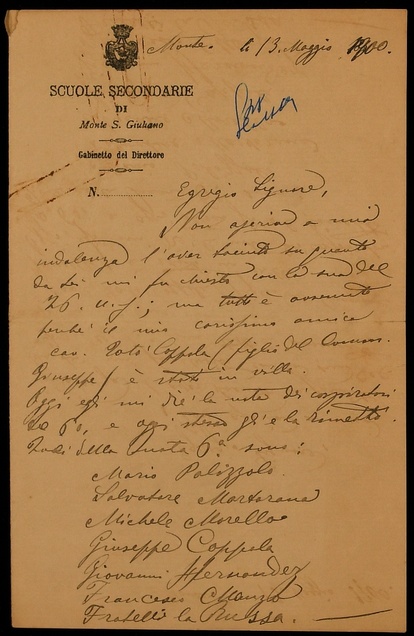 Monte, li 13 Maggio 1900.
SCUOLE SECONDARIE
DI
Monte S. Giuliano
Gabinetto del Direttore
N.
Egregio Signore,
Non ascriva a mia
indolenza l'aver taciuto su quanto
da Lei mi fu chiesto con la sua del
26 u. s.; ma tutto è avvenuto
perché il mio carissimo amico
cav. Totò Coppola (figlio del Comm.
Giuseppe) è stato in villa.
Oggi egli mi diè la nota dei cospiratori
del 60, e oggi stesso gliela rimetto.
I della nota sono:
Mario Palizzolo
Salvatore Martorana
Michele Morello
Giuseppe Coppola
Giovanni Hernandez
Francesco Manzo
Fratelli La Russa.